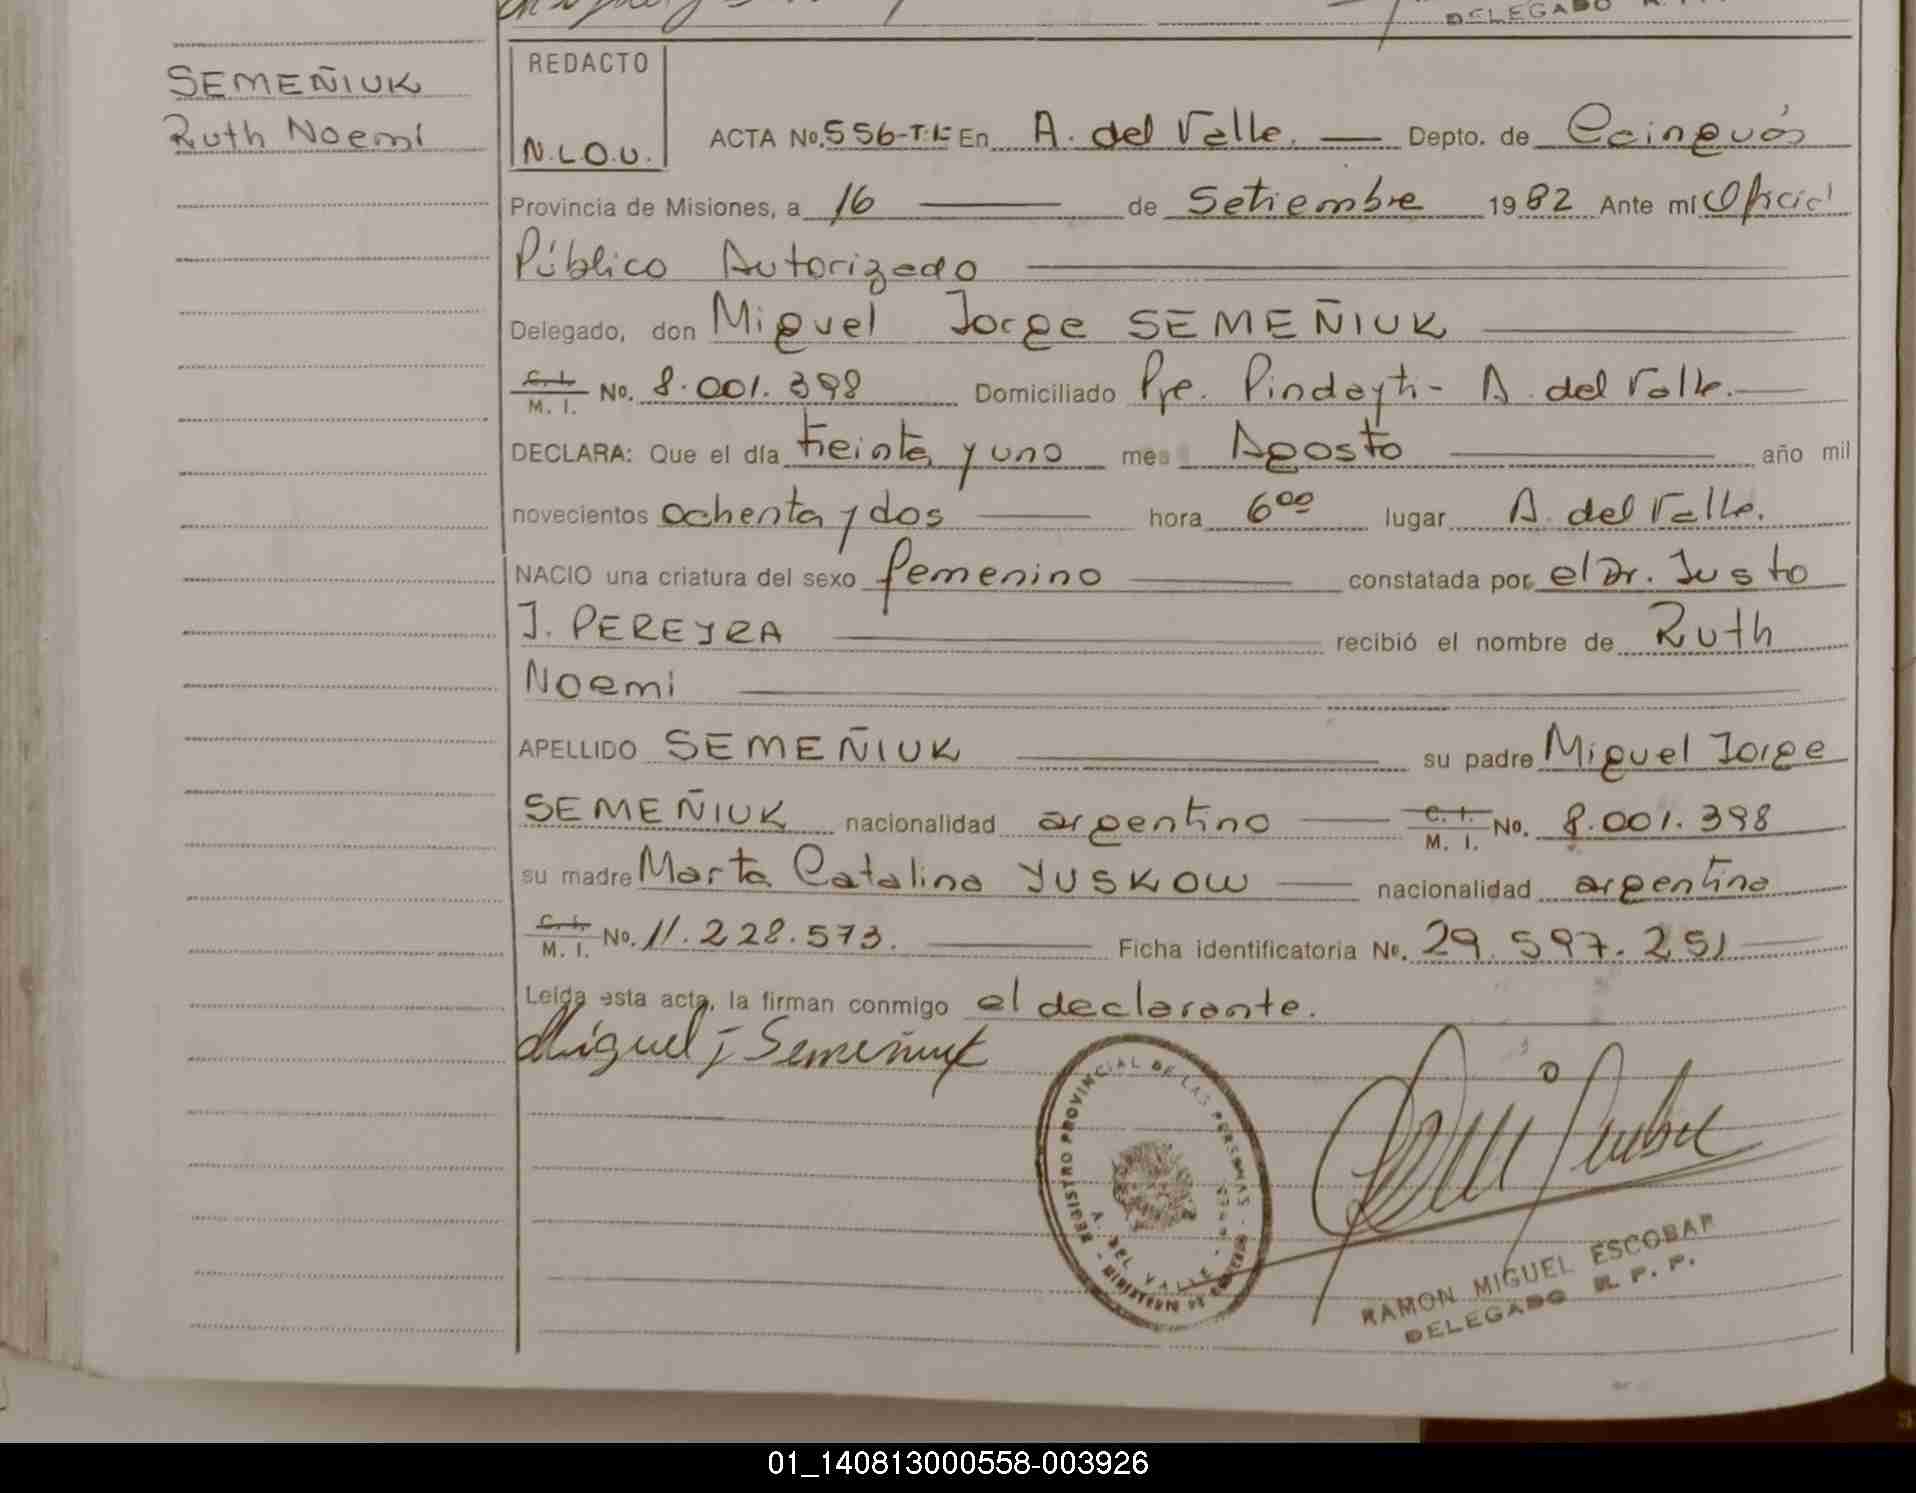 DELEGADO
SEMEÑIUK
Ruth Noemí
REDACTO
N.L.O.U.
ACTA No. 556-T.I- En A. del Valle. Depto. de Cainguás
Provincia de Misiones, a 16 de Setiembre 1982 Ante mí Oficial
Público Autorizado
Delegado, don Miguel Jorge SEMEÑIUK
C. I.
M. I. No. 8.001.398 Domiciliado Pje. Pindayti - A. del Valle.
DECLARA: Que el día treinta y uno mes Agosto año mil
novecientos ochenta y dos hora 6oo lugar A. del Valle.
NACIO una criatura del sexo femenino constatada por el Dr. Justo
J. PEREYRA recibió el nombre de Ruth
Noemi
APELLIDO SEMEÑIUK su padre Miguel Jorge
SEMEÑIUK nacionalidad argentino C. I.
M. I. No. 8.001.398
su madre Marta Catalina YUSKOW nacionalidad argentina
C. I.
M. I. No. 11.228.573. Ficha identificatoria No. 29.597.251
Leída esta acta, la firman conmigo el declarante.
Miguel J Semeñiuk
REGISTRO PROVINCIAL DE LAS PERSONAS - MINISTERIO DE GOBIERNO
A. DEL VALLE - MNES.
RAMON MIGUEL ESCOBAR
DELEGADO R. P. P.
01_140813000558-003926